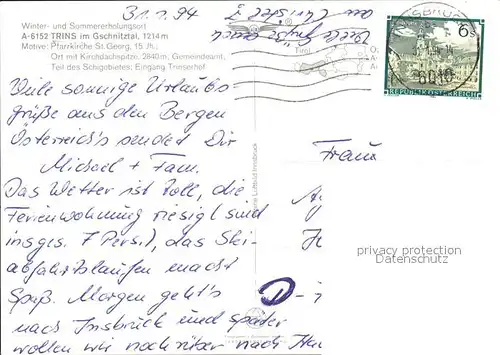 31.1.94
Winter- und Sommererholungsort
A-6152 TRINS im Gschnitztal, 1214 m
Motive: Pfarrkirche St. Georg, 15. Jh.;
Ort mit Kirchdachspitze, 2840 m, Gemeindeamt,
Teil des Schigebietes: Eingang Trinserhof
Viele sonnige Urlaubs-
grüße aus den Bergen
Österreich's sendet Dir
Michael + Fam.
Das Wetter ist toll, die
Ferienwohnung riesig (sind
insges. 7 Pers.), das Ski-
abfahrtslaufen macht
Spaß. Morgen geht's
nach Insbruck und später
wollen wir noch rüber nach
Tirol
6S
6010
REPUBLIK ÖSTERREICH
Frau
D-
privacy protection
Datenschutz